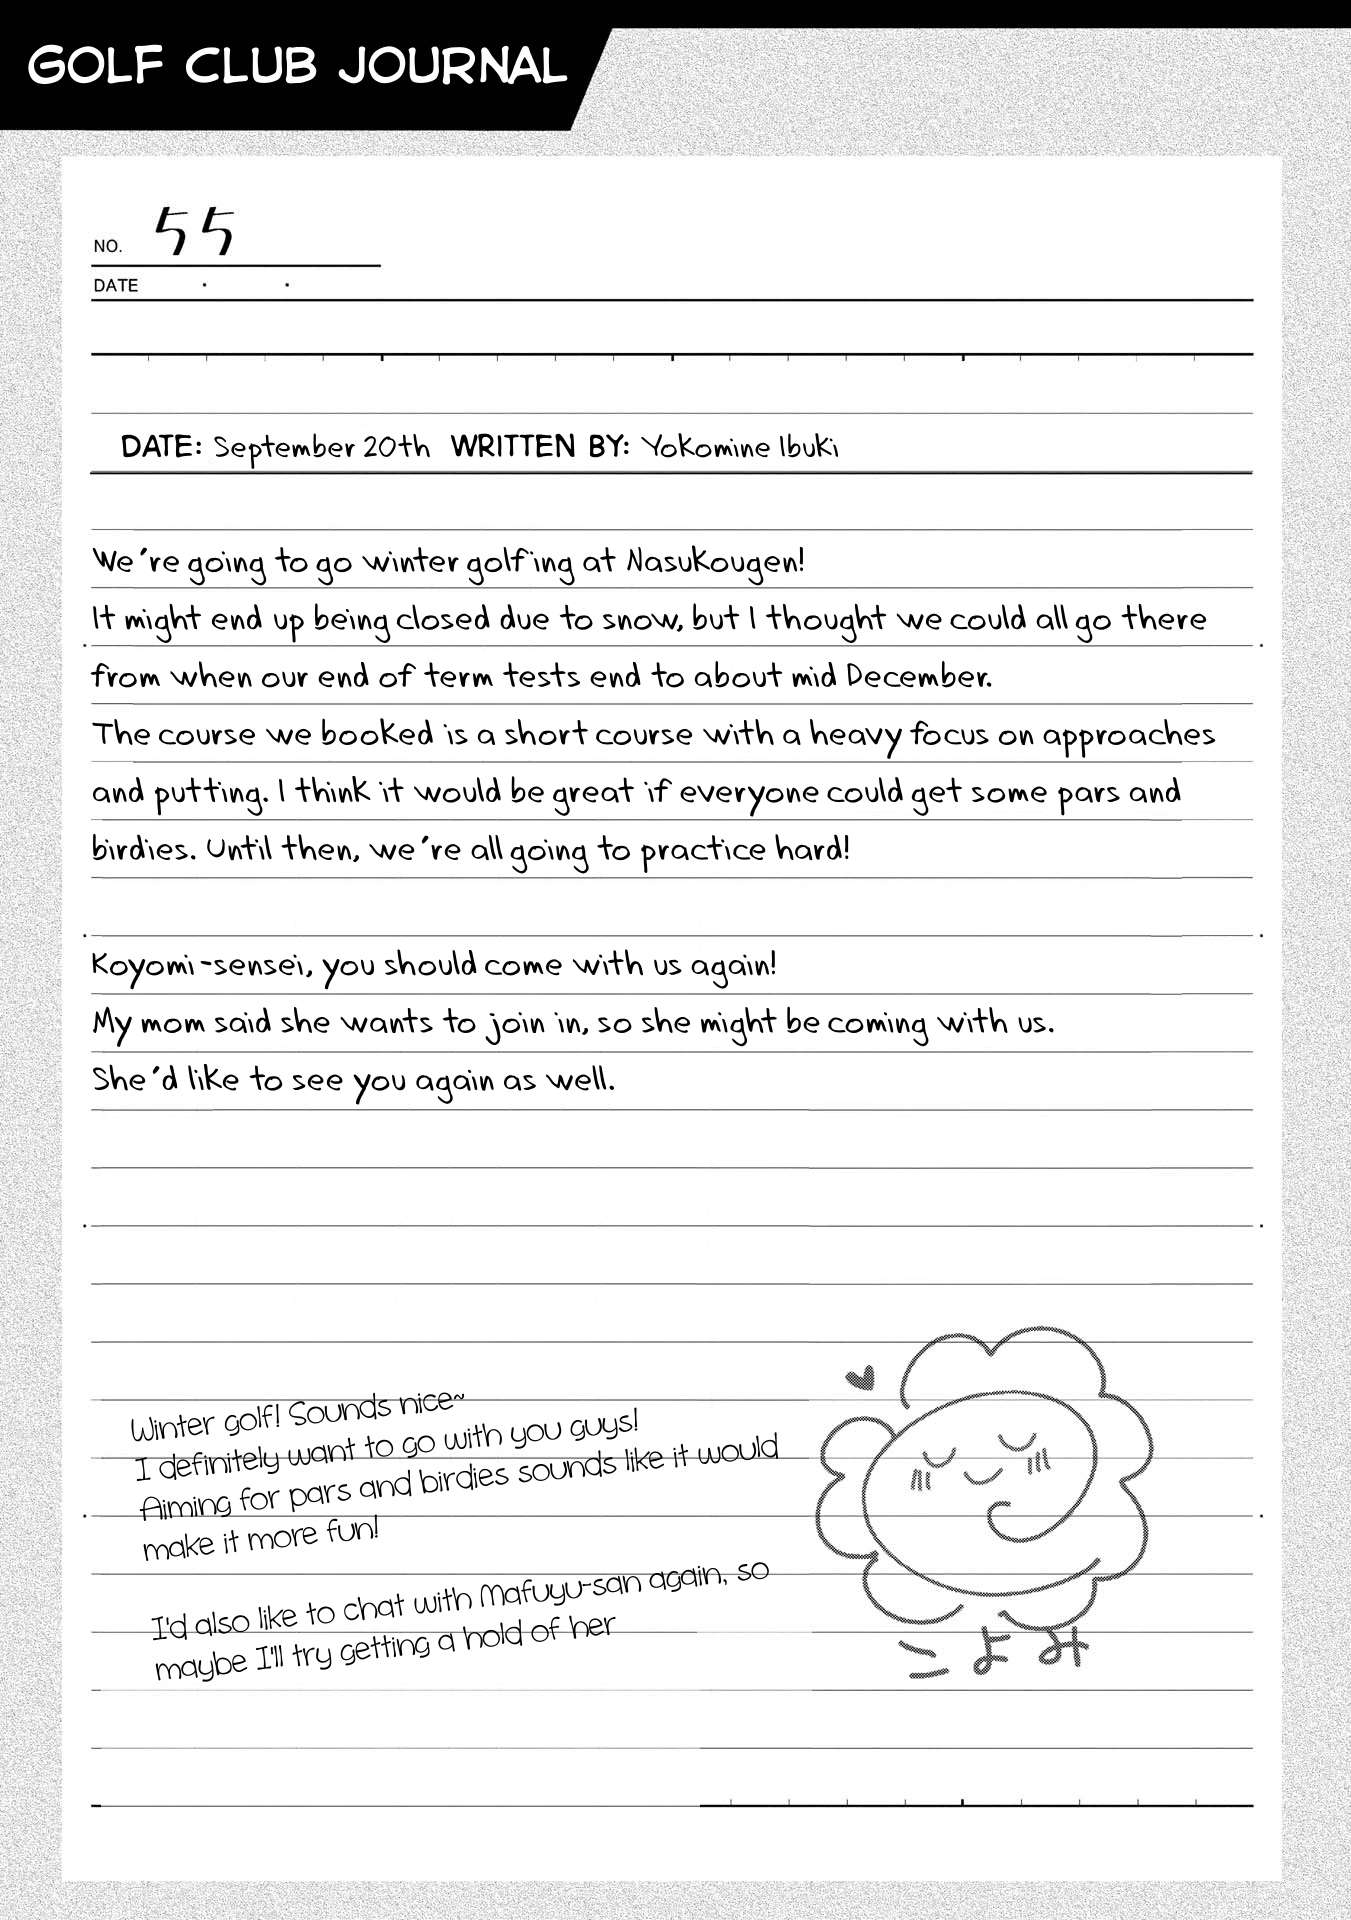 GOLF CLUB JOURNAL
NO. 55
DATE . .
DATE: September 20th WRITTEN BY: Yokomine Ibuki
We're going to go winter golfing at Nasukougen!
It might end up being closed due to snow, but I thought we could all go there
from when our end of term tests end to about mid December.
The course we booked is a short course with a heavy focus on approaches
and putting. I think it would be great if everyone could get some pars and
birdies. Until then, we're all going to practice hard!
Koyomi-sensei, you should come with us again!
My mom said she wants to join in, so she might be coming with us.
She'd like to see you again as well.
Winter golf! Sounds nice~
I definitely want to go with you guys!
Aiming for pars and birdies sounds like it would
make it more fun!
I'd also like to chat with Mafuyu-san again, so
maybe I'll try getting a hold of her
こよみ